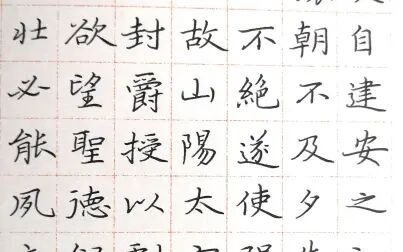 自建安之
朝不及夕
不絕遂使
故山陽太
封爵授以
欲望聖德
壯必能夙